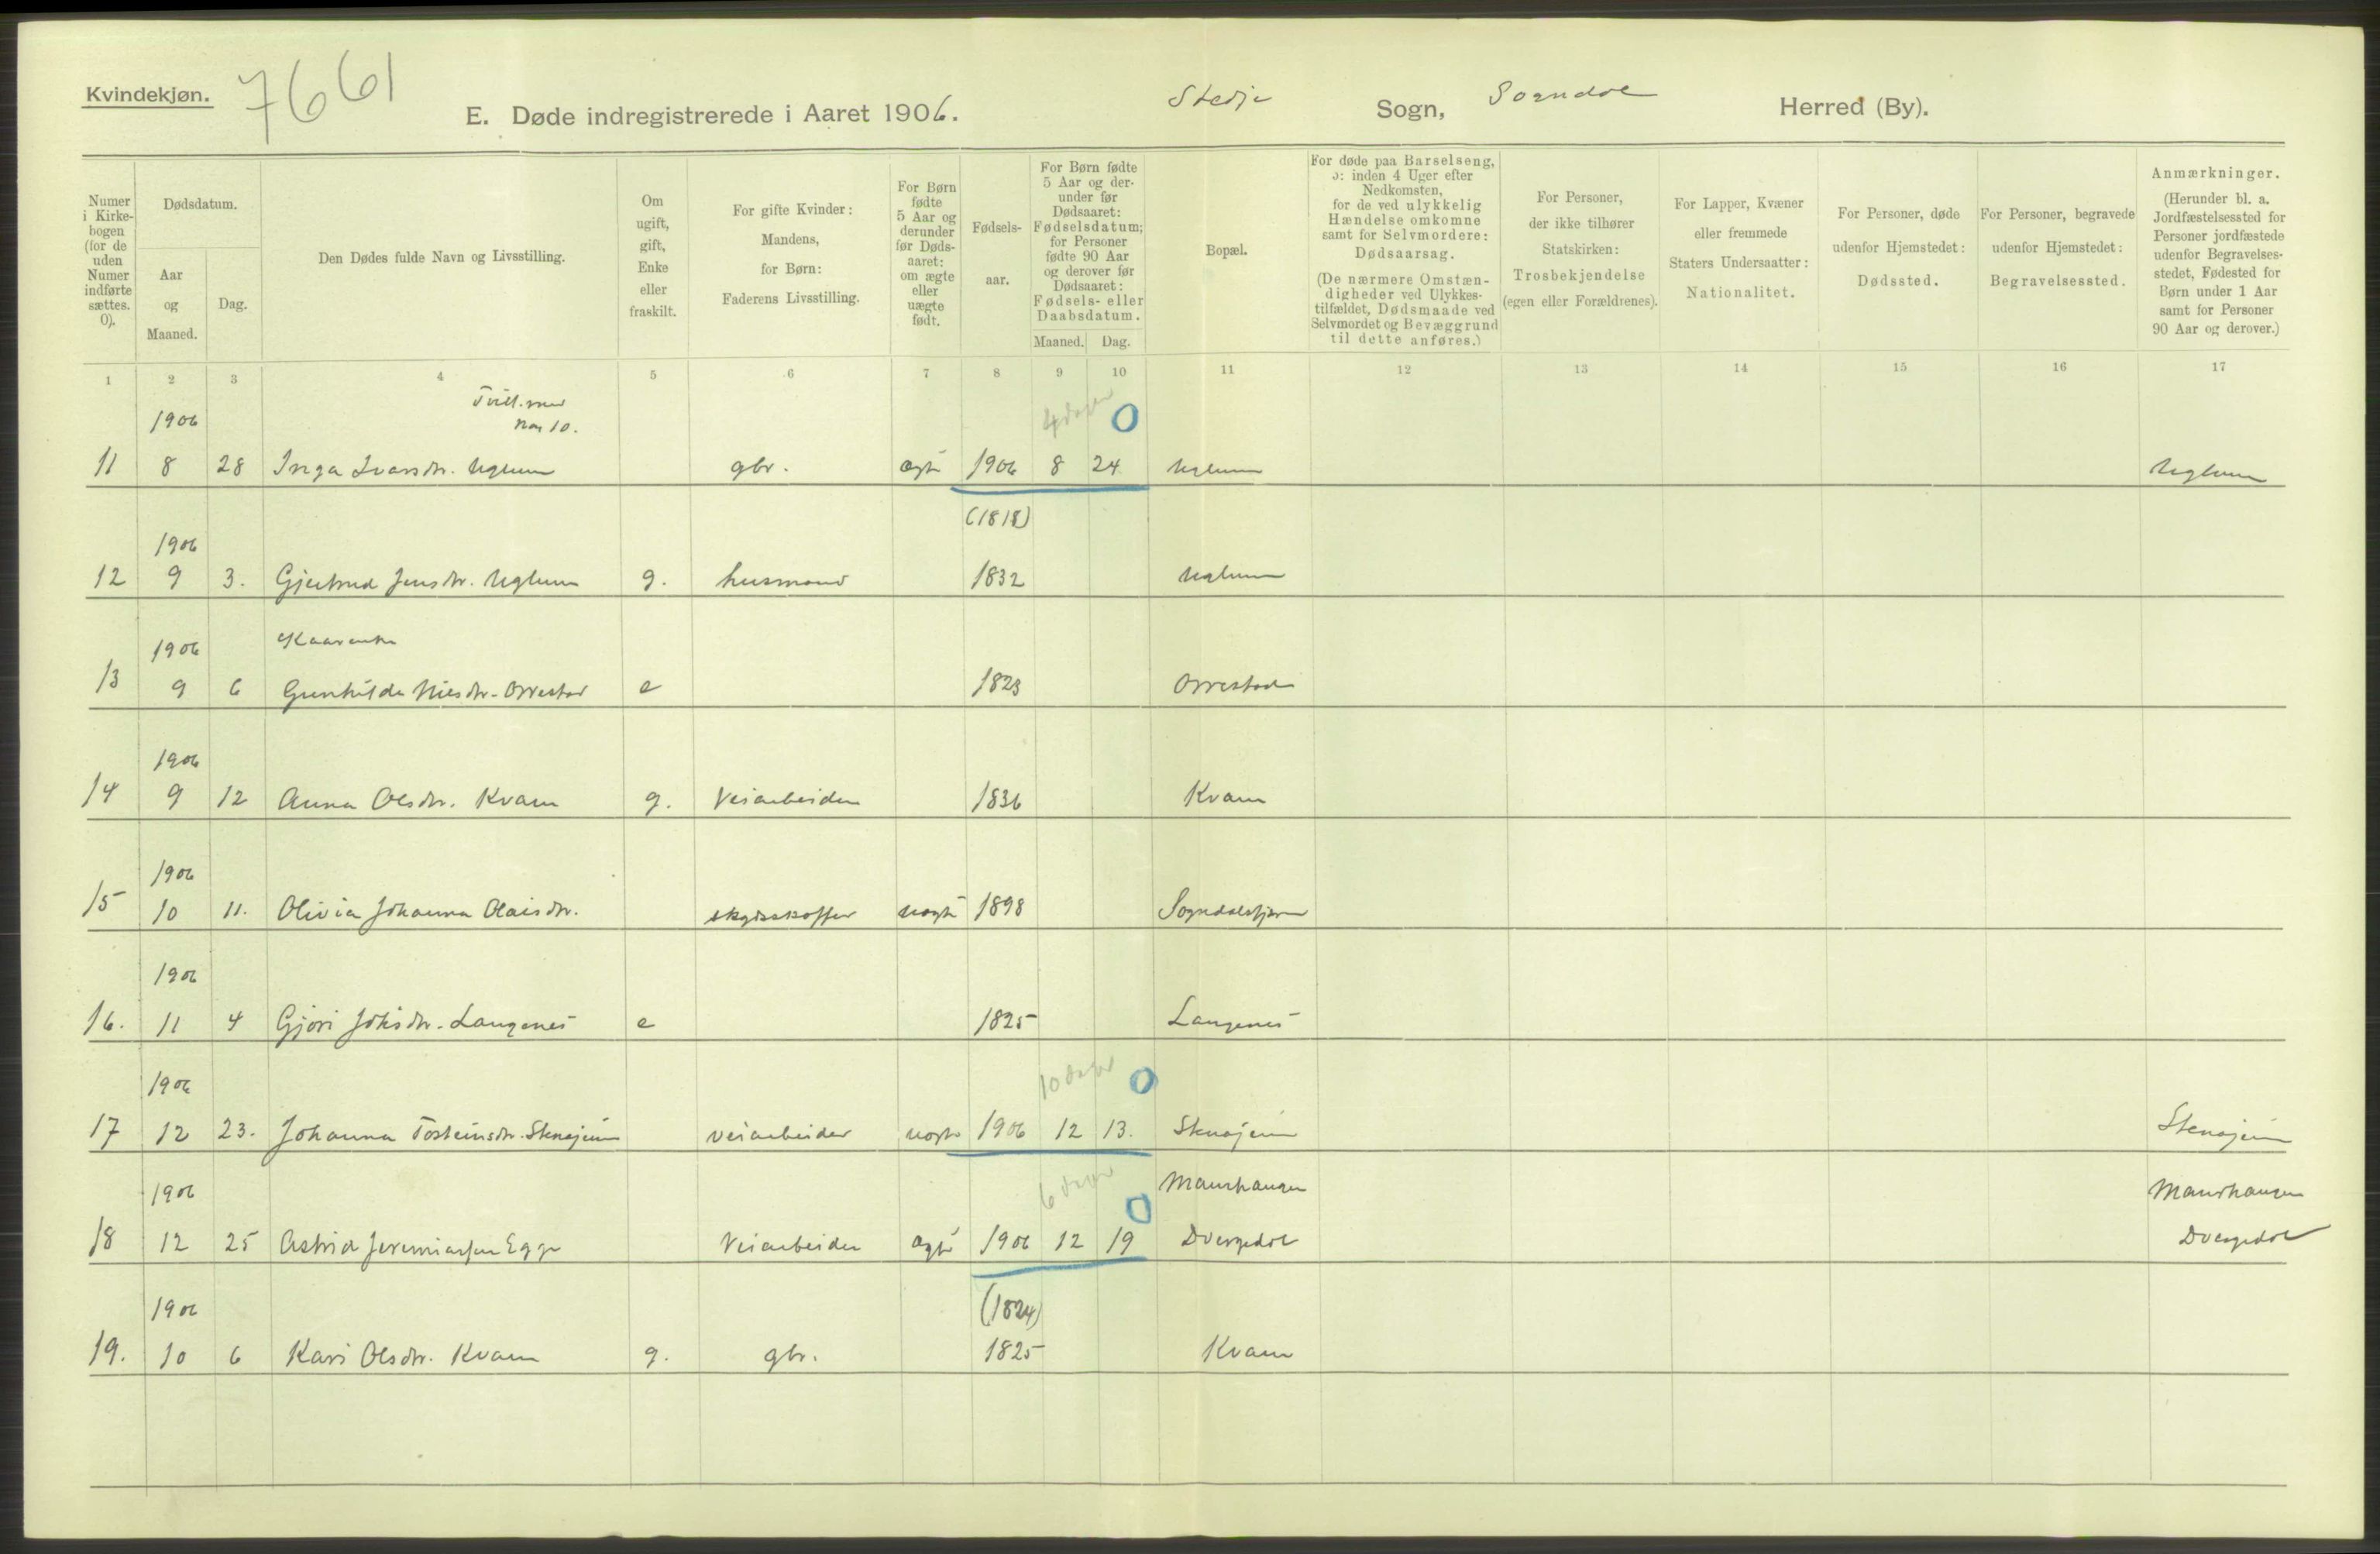 Kvindekjøn.
7661
E. Døde indregistrerede i Aaret 1906.
Stedje Sogn, Sogndal Herred (By).
Numer i Kirkebogen (for de uden Numer indførte sættes. 0).
Dødsdatum.
Aar og Maaned.
Dag.
Den Dødes fulde Navn og Livsstilling.
Om ugift, gift, Enke eller fraskilt.
For gifte Kvinder: Mandens, for Børn: Faderens Livsstilling.
For Børn fødte 5 Aar og derunder før Dødsaaret: om ægte eller uægte født.
Fødsels-aar.
For Børn fødte 5 Aar og derunder før Dødsaaret: Fødselsdatum; for Personer fødte 90 Aar og derover før Dødsaaret: Fødsels- eller Daabsdatum.
Maaned. Dag.
Bopæl.
For døde paa Barselseng, ɔ: inden 4 Uger efter Nedkomsten, for de ved ulykkelig Hændelse omkomne samt for Selvmordere: Dødsaarsag.
(De nærmere Omstændigheder ved Ulykkestilfældet, Dødsmaade ved Selvmordet og Bevæggrund til dette anføres.)
For Personer, der ikke tilhører Statskirken: Trosbekjendelse (egen eller Forældrenes).
For Lapper, Kvæner eller fremmede Staters Undersaatter: Nationalitet.
For Personer, døde udenfor Hjemstedet: Dødssted.
For Personer, begravede udenfor Hjemstedet: Begravelsessted.
Anmærkninger.
(Herunder bl. a. Jordfæstelsessted for Personer jordfæstede udenfor Begravelsesstedet, Fødested for Børn under 1 Aar samt for Personer 90 Aar og derover.)
1 2 3 4 5 6 7 8 9 10 11 12 13 14 15 16 17
Tvill. med
No 10.
1906 4 dager 0
11 8 28 Inga Ivarsdtr. Uglum gbr. ægte 1906 8 24 Uglum Uglum
1906 (1818)
12 9 3. Gjertrud Jensdtr. Uglum g. husmand 1832 Uglum
1906 Kaarenke
13 9 6 Gunhilda Nilsdtr. Orrestad e 1823 Orrestad
1906
14 9 12 Anna Olsdtr. Kvam g. Veiarbeider 1836 Kvam
1906
15 10 11. Olivia Johanna Olaisdtr. skydsskaffer uægte 1898 Sogndalsfjæren
1906
16. 11 4 Gjøri Johsdtr. Langenes e 1825 Langenes
1906 10 dager 0
17 12 23. Johanna Tosteinsdtr. Stenejem veiarbeider uægte 1906 12 13. Stenejem Stenejem
1906 6 dager 0 Maurhaugen Maurhaugen
18 12 25 Astrid Jeremiassen Egge Veiarbeider ægte 1906 12 19 Dvergedal Dvergedal
1906 (1824)
19. 10 6 Kari Olsdtr. Kvam g. gbr. 1825 Kvam